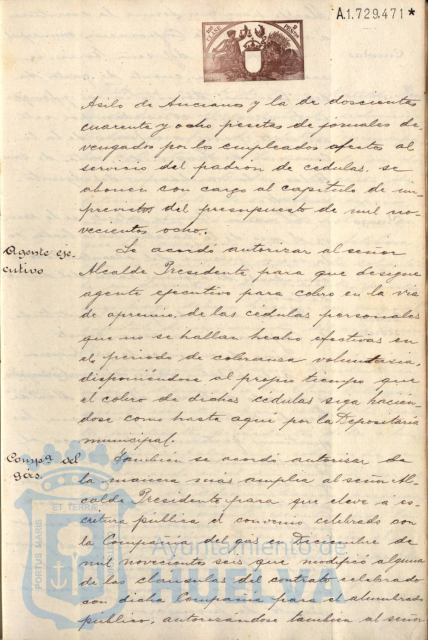 A.1.729.471*
Asilo de Ancianos y la de doscientas
cuarenta y ocho pesetas de jornales de-
vengados por los empleados afectos al
servicio del padrón de cédulas, se
abonen con cargo al capítulo de im-
previstos del presupuesto de mil no-
vecientos ocho.
Agente eje-
cutivo
Se acordó autorizar al señor
Alcalde Presidente para que designe
agente ejecutivo para cobro en la via
de apremio, de las cédulas personales
que no se hallan hecho efectivas en
el periodo de cobranza voluntaria,
disponiéndose al propio tiempo que
el cobro de dichas cédulas siga hacien-
dose como hasta aquí por la Depositaría
municipal.
Compª del
gás
También se acordó autorizar de
la manera más amplia al señor Al-
calde Presidente para que eleve á es-
critura pública el convenio celebrado con
la Compañia del gas en Diciembre de
mil novecientos seis que modificó alguna
de las cláusulas del contrato celebrado
con dicha Compañia para el alumbrado
público, autorizándose también al señor
PORTUS MARIS ET TERRAE
Ayuntamiento de
HUELVA